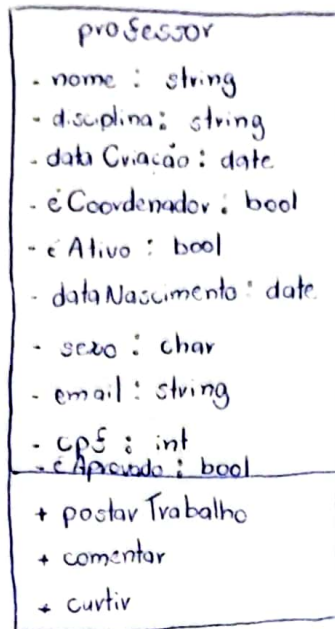 professor
- nome : string
- disciplina : string
- data Criação : date
- éCoordenador : bool
- éAtivo : bool
- dataNascimento : date
- sexo : char
- email : string
- cpf : int
- éAprovado : bool
+ postar Trabalho
+ comentar
+ curtir